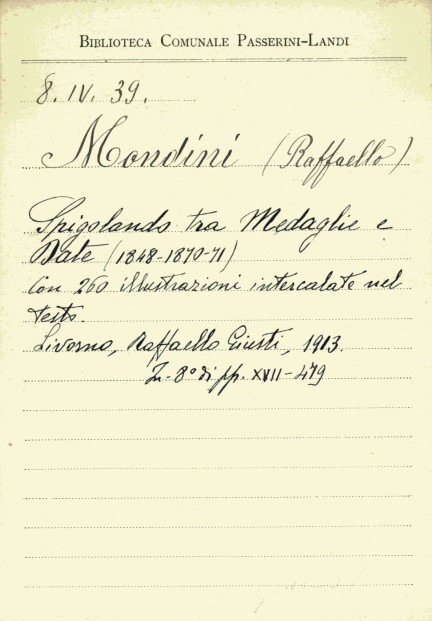 BIBLIOTECA COMUNALE PASSERINI-LANDI
8. IV. 39.
Mondini (Raffaello)
Spigolando tra Medaglie e
Date (1848-1870-71)
Con 260 illustrazioni intercalate nel
testo.
Livorno, Raffaello Giusti, 1913.
In-8° di pp. XVII-479